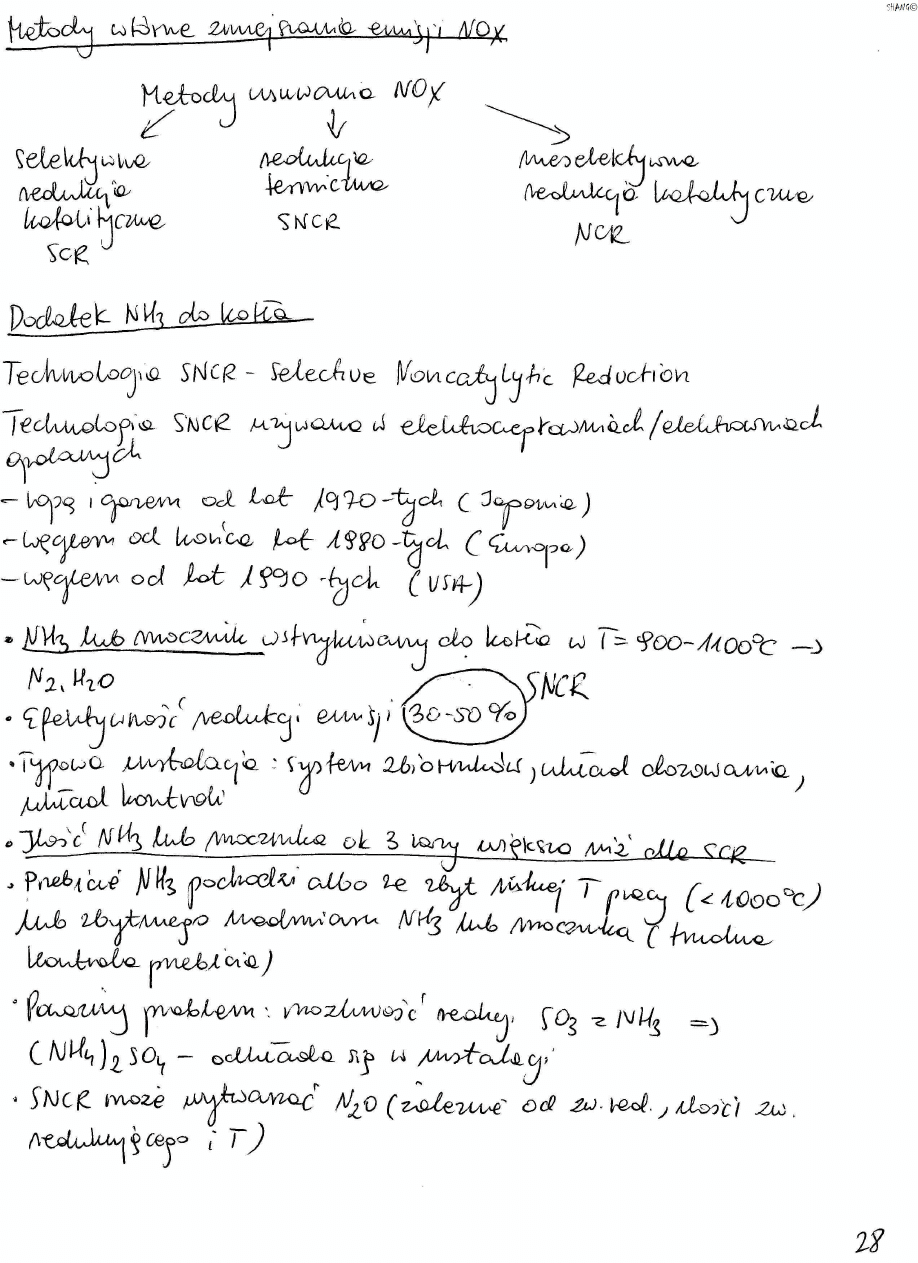 SHANG©
Metody wtórne zmniejszania emisji NOx
Metody usuwania NOx
selektywna
redukcja
katalityczna
SCR
redukcja
termiczna
SNCR
nieselektywna
redukcja katalityczna
NCR
Dodatek NH3 do kotła
Technologia SNCR - Selective Noncatylytic Reduction
Technologia SNCR używana w elektrociepłowniach/elektrowniach
opalanych
- ropą i gazem od lat 1970-tych (Japonia)
- węglem od końca lat 1980-tych (Europa)
- węglem od lat 1990-tych (USA)
• NH3 lub mocznik wstrzykiwany do kotła w T= 900-1100°C →
N2, H2O
SNCR
• Efektywność redukcji emisji 30-50%
• Typowa instalacja: system zbiorników, układ dozowania,
układ kontroli
• Ilość NH3 lub mocznika ok 3 razy większa niż dla SCR
• Przebicie NH3 pochodzi albo ze zbyt niskiej T pracy (<1000°C)
lub zbytniego nadmiaru NH3 lub mocznika (trudna
kontrola przebicia)
• Poważny problem: możliwość reakcji SO3 z NH3 =>
(NH4)2SO4 - odkłada się w instalacji
• SNCR może wytwarzać N2O (zależnie od zw. red., ilości zw.
redukującego i T)
28